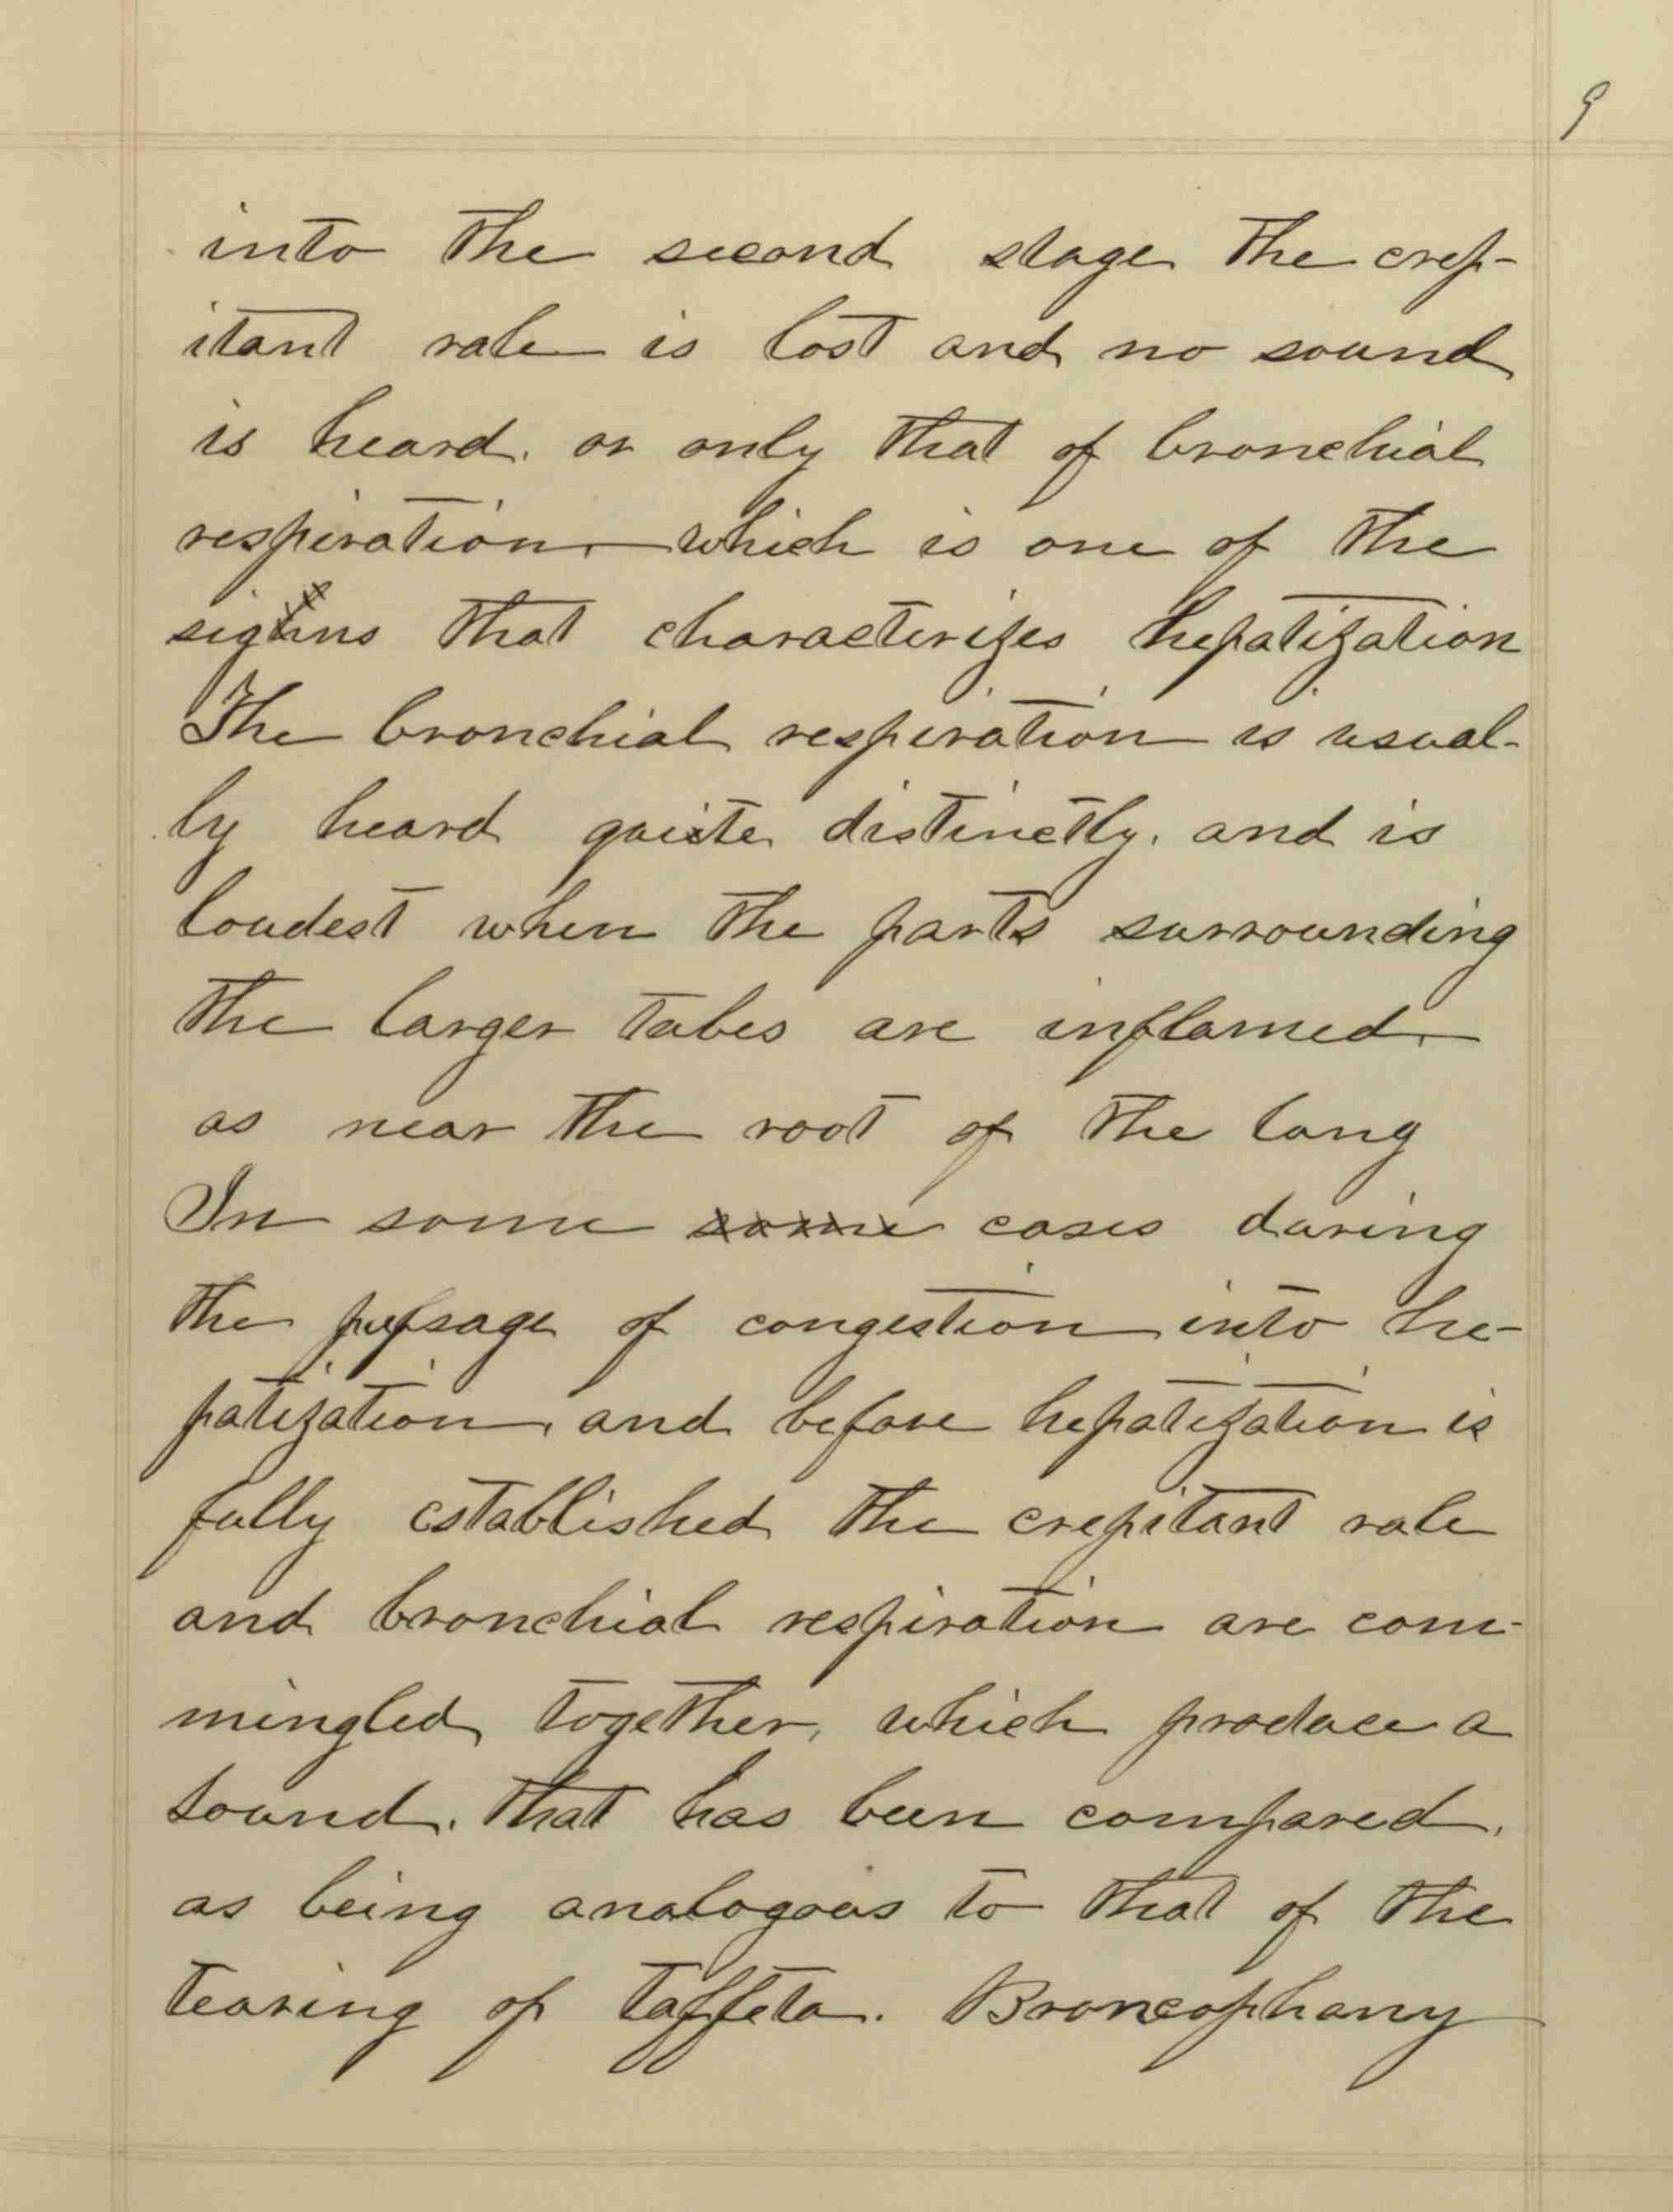 9
into the second stage the crep-
itant rale is lost and no sound
is heard. or only that of bronchial
respiration, which is one of the
signs that characterizes hepatization
The bronchial respiration is usual-
ly heard quiste distinctly, and is
loudest when the parts surrounding
the larger tubes are inflamed
as near the root of the lung
In some some cases during
the passage of congestion into he-
patization, and before hepatization is
fully established the crepitant rale
and bronchial respiration are com-
mingled together, which produce a
sound. that has been compared.
as being analogous to that of the
tearing of taffeta. Broncophany